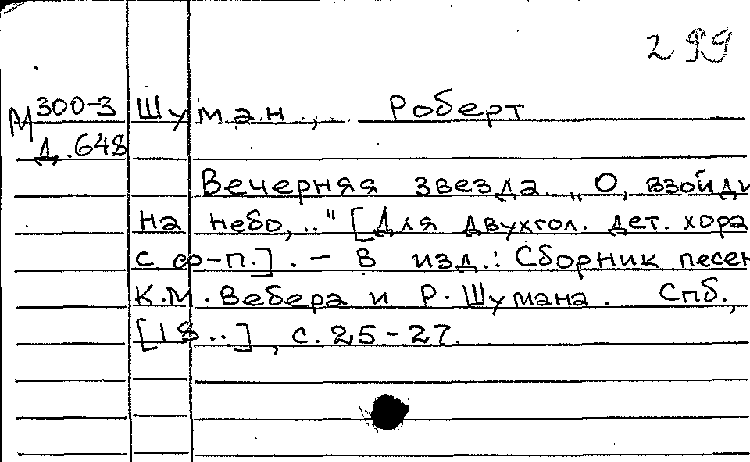 299
М300-3 Шуман, Роберт
Д.648
Вечерняя звезда. „О, взойди
на небо,.." [Для двухгол. дет. хора
с ф-п.]. - В изд.: Сборник песен
К.М. Вебера и Р. Шумана. Спб.,
[18..], с. 25-27.